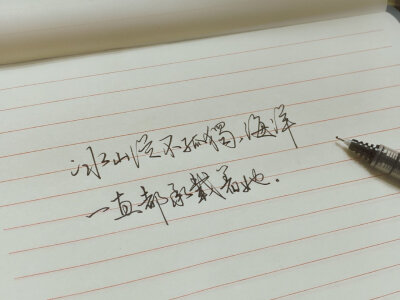 冰山從不孤獨，海洋
一直都承載着她.